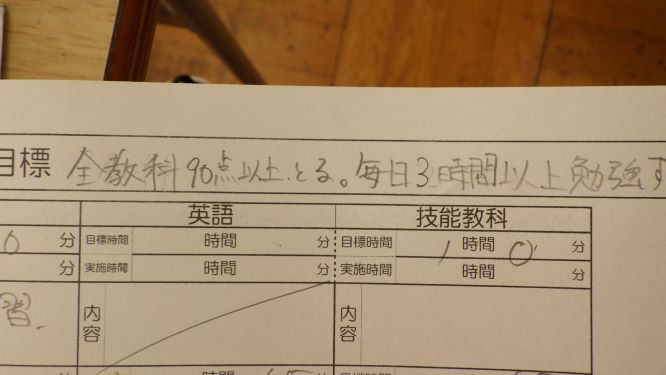 目標 全教科90点以上とる。毎日3時間以上勉強す
英語 技能教科
0 分 目標時間 時間 分 目標時間 1 時間 0 分
分 実施時間 時間 分 実施時間 時間 分
習. 内容 内容
時間